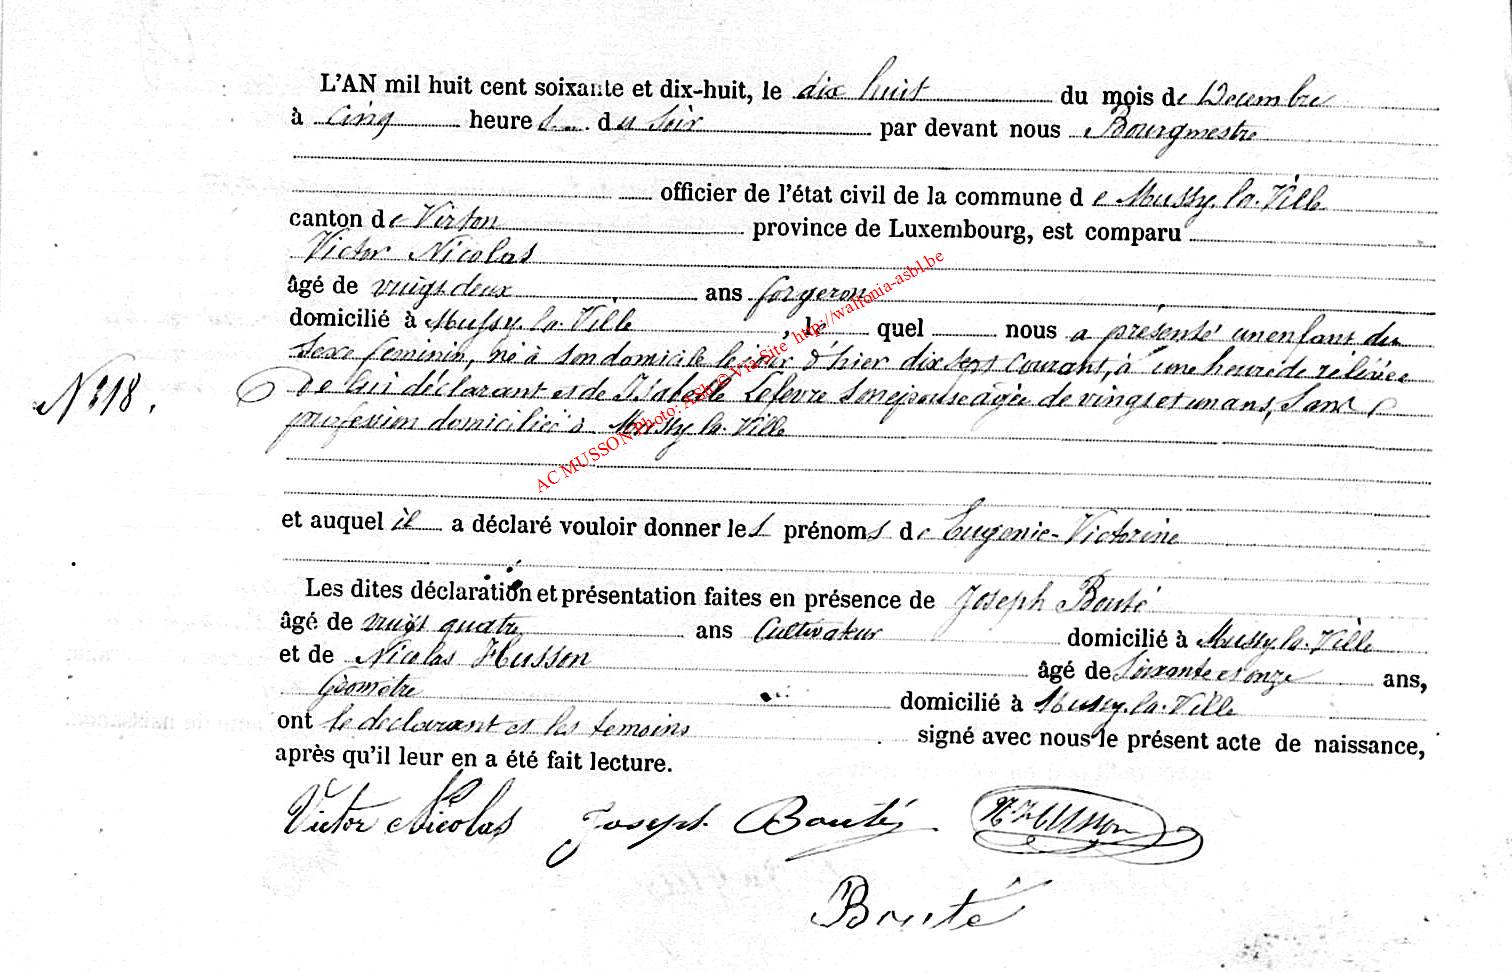 L'AN mil huit cent soixante et dix-huit, le dix huit du mois de Decembre
à Cinq heures du Soir par devant nous Bourgmestre
officier de l'état civil de la commune de Mussy-la-Ville
canton de Virton province de Luxembourg, est comparu
Victor Nicolas
âgé de vingt deux ans forgeron
domicilié à Mussy-la-Ville, le quel nous a présenté un enfant du
Sexe feminin, né à Son domicile le jour d'hier dix sept Courant, à une heure de relévée
N° 18. De lui déclarant et de Isabelle Lefevre Son épouse agée de vingt et un ans, Sans
profession domiciliée à Mussy-la-Ville
et auquel il a déclaré vouloir donner les prénoms de Eugenie-Victorine
Les dites déclaration et présentation faites en présence de Joseph Bouté
âgé de vingt quatre ans Cultivateur domicilié à Mussy-la-Ville
et de Nicolas Husson âgé de Soixante et onze ans,
Géomètre domicilié à Mussy-la-Ville
ont le declarant et les temoins signé avec nous le présent acte de naissance,
après qu'il leur en a été fait lecture.
Victor Nicolas Joseph Bouté N. Husson
Bouté
AC MUSSON Photo: ASh © Via Site http://wallonia-asbl.be